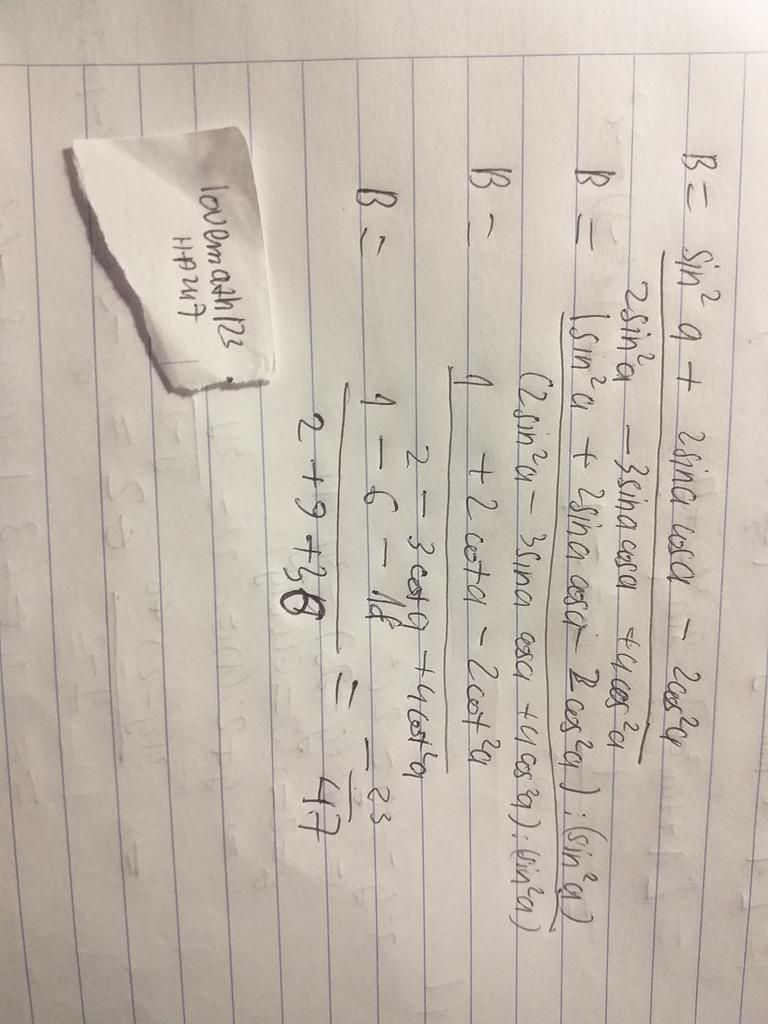 B = sin² a + 2sina cosa - 2cos²a
2sin²a - 3sina cosa + 4cos²a
B = (sin²a + 2sina cosa - 2cos²a) : (sin²a)
(2sin²a - 3sina cosa + 4cos²a) : (sin²a)
B = 1 + 2cota - 2cot²a
2 - 3cota + 4cot²a
B = 1 - 6 - 18
2 + 9 + 36
= - 23
47
lovemath123